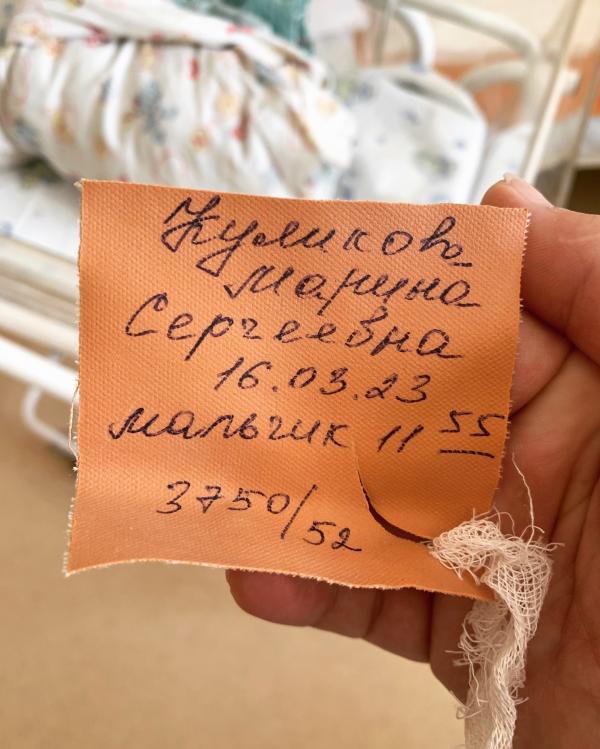 Куликова
Марина
Сергеевна
16.03.23
мальчик 11 55
3750/52